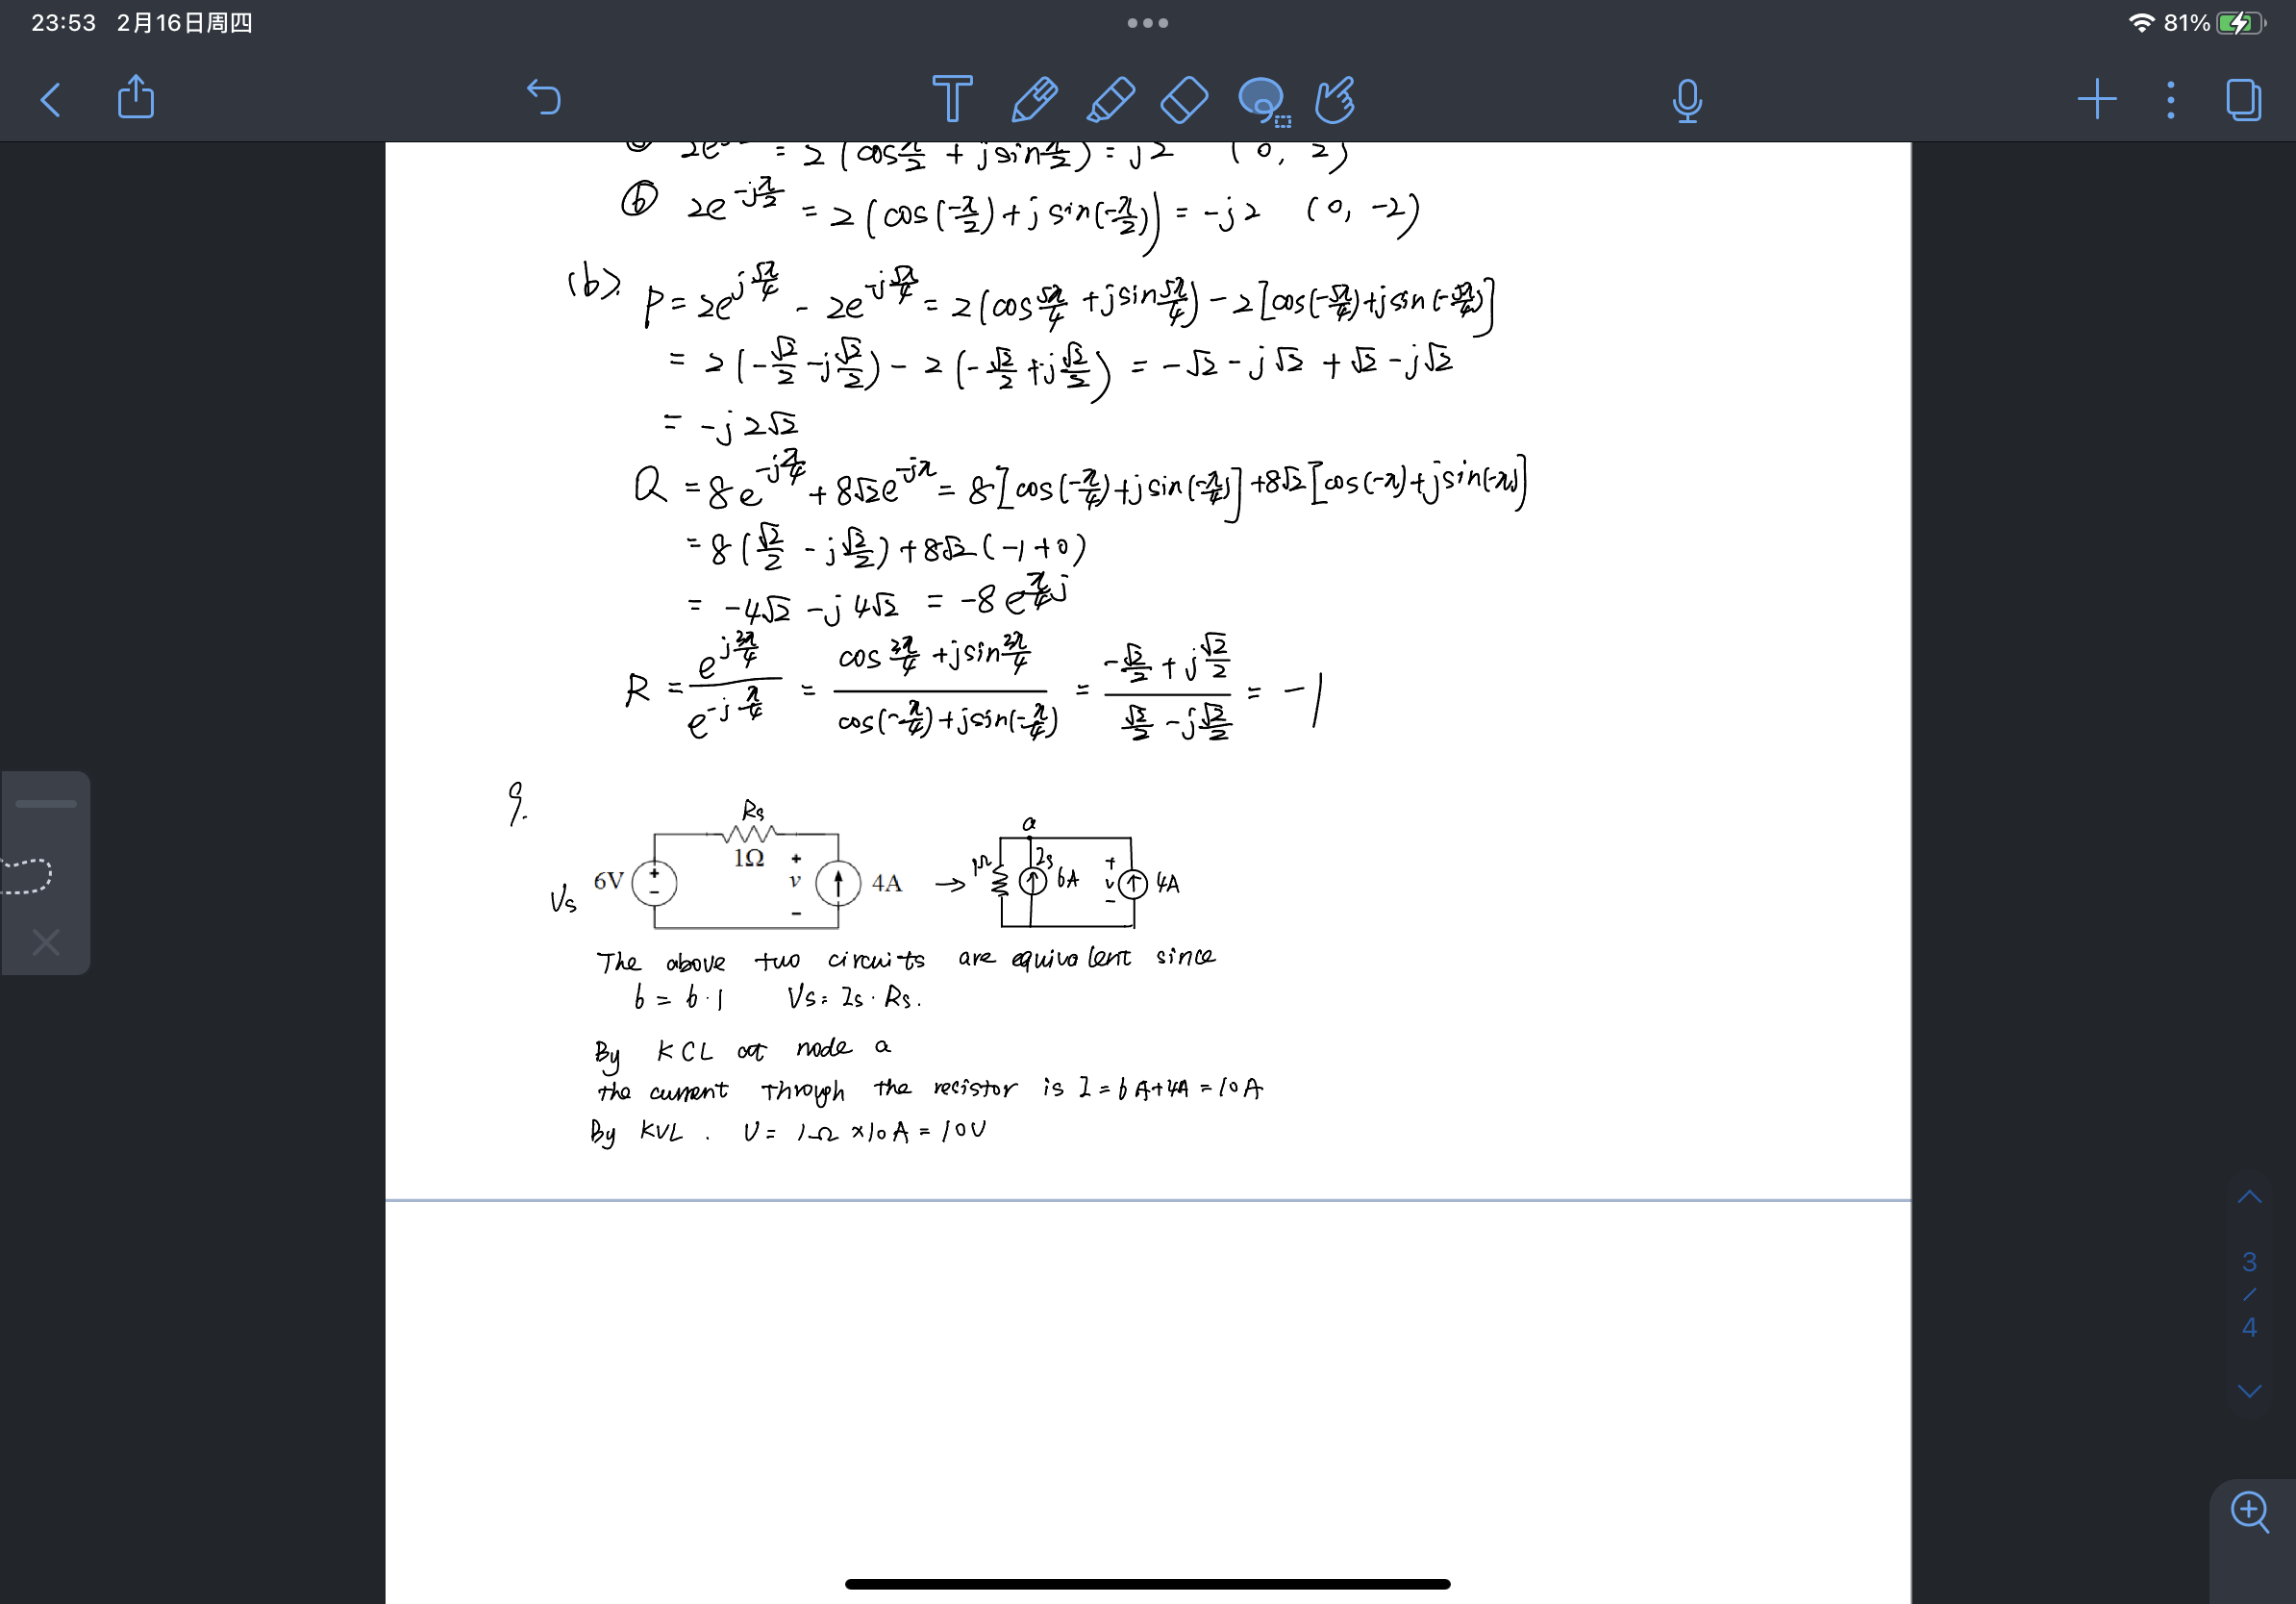 23:53 2月16日周四
81%
= 2(cos π/2 + j sin π/2) = j2 (0, 2)
ⓑ 2e^(-jπ/2) = 2(cos(-π/2) + j sin(-π/2)) = -j2 (0, -2)
(b). P = 2e^(j5π/4) - 2e^(-j5π/4) = 2(cos 5π/4 + j sin 5π/4) - 2[cos(-5π/4) + j sin(-5π/4)]
= 2(-√2/2 - j√2/2) - 2(-√2/2 + j√2/2) = -√2 - j√2 + √2 - j√2
= -j2√2
Q = 8e^(-jπ/4) + 8√2e^(-jπ) = 8[cos(-π/4) + j sin(-π/4)] + 8√2[cos(-π) + j sin(-π)]
= 8(√2/2 - j√2/2) + 8√2(-1+0)
= -4√2 - j4√2 = -8e^(π/4 j)
R = e^(j3π/4) / e^(-jπ/4) = (cos 3π/4 + j sin 3π/4) / (cos(-π/4) + j sin(-π/4)) = (-√2/2 + j√2/2) / (√2/2 - j√2/2) = -1
9.
Rs
1Ω
Vs 6V + - + v - 4A
→
a
1Ω Is 6A + v - 4A
The above two circuits are equivalent since
6 = 6·1 Vs = Is · Rs.
By KCL at node a
the current through the resistor is I = 6A+4A = 10A
By KVL. V = 1Ω × 10A = 10V
3
/
4